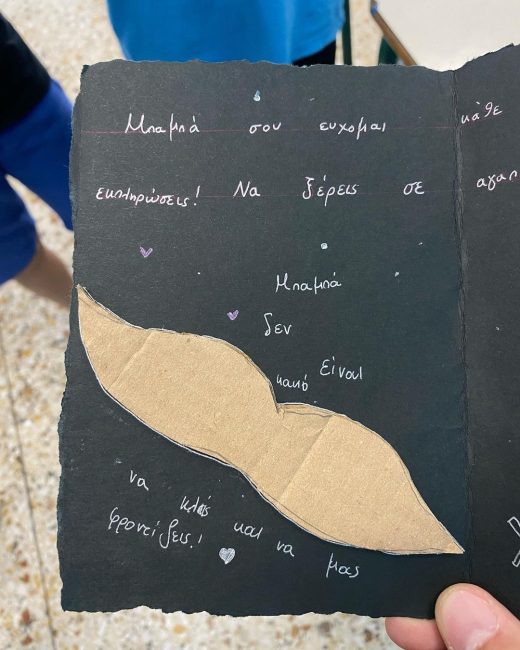 Μπαμπά σου ευχομαι κάθε
εκπληρώσεις! Να ξέρεις σε αγαπ
Μπαμπά
δεν
Είναι
κακό
να κλάς και να μας
φροντίζεις!